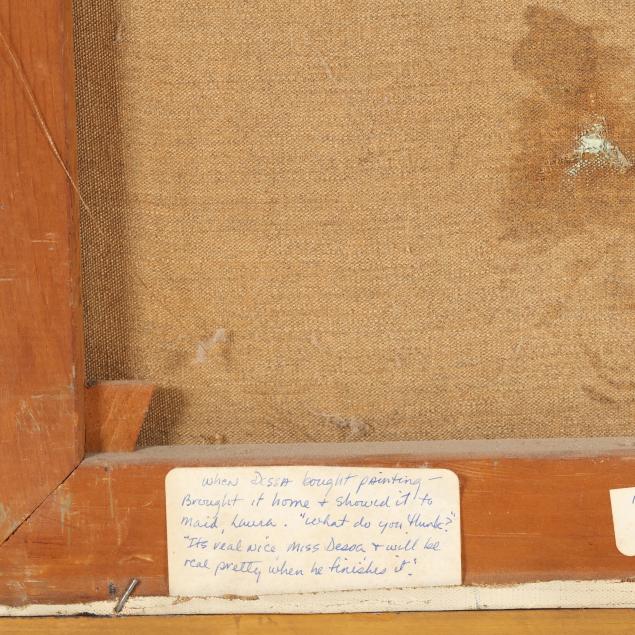 When Dessa bought painting –
Brought it home + showed it to
maid, Laura. "What do you think?"
"Its real nice Miss Dessa + will be
real pretty when he finishes it."